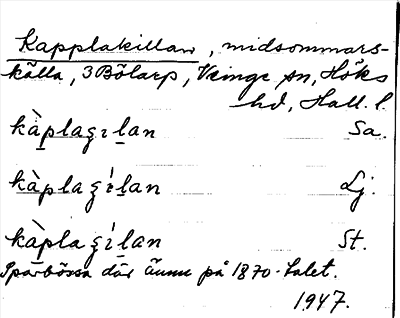 Kapplakillan, midsommars-
källa, 3 Bölarp, Veinge sn, Höks
hd, Hall. l.
kàplaʒɪlan Sa.
kàplaʒílan Lj.
kàplaʒílan St.
Sparbössa där ännu på 1870-talet.
1947.